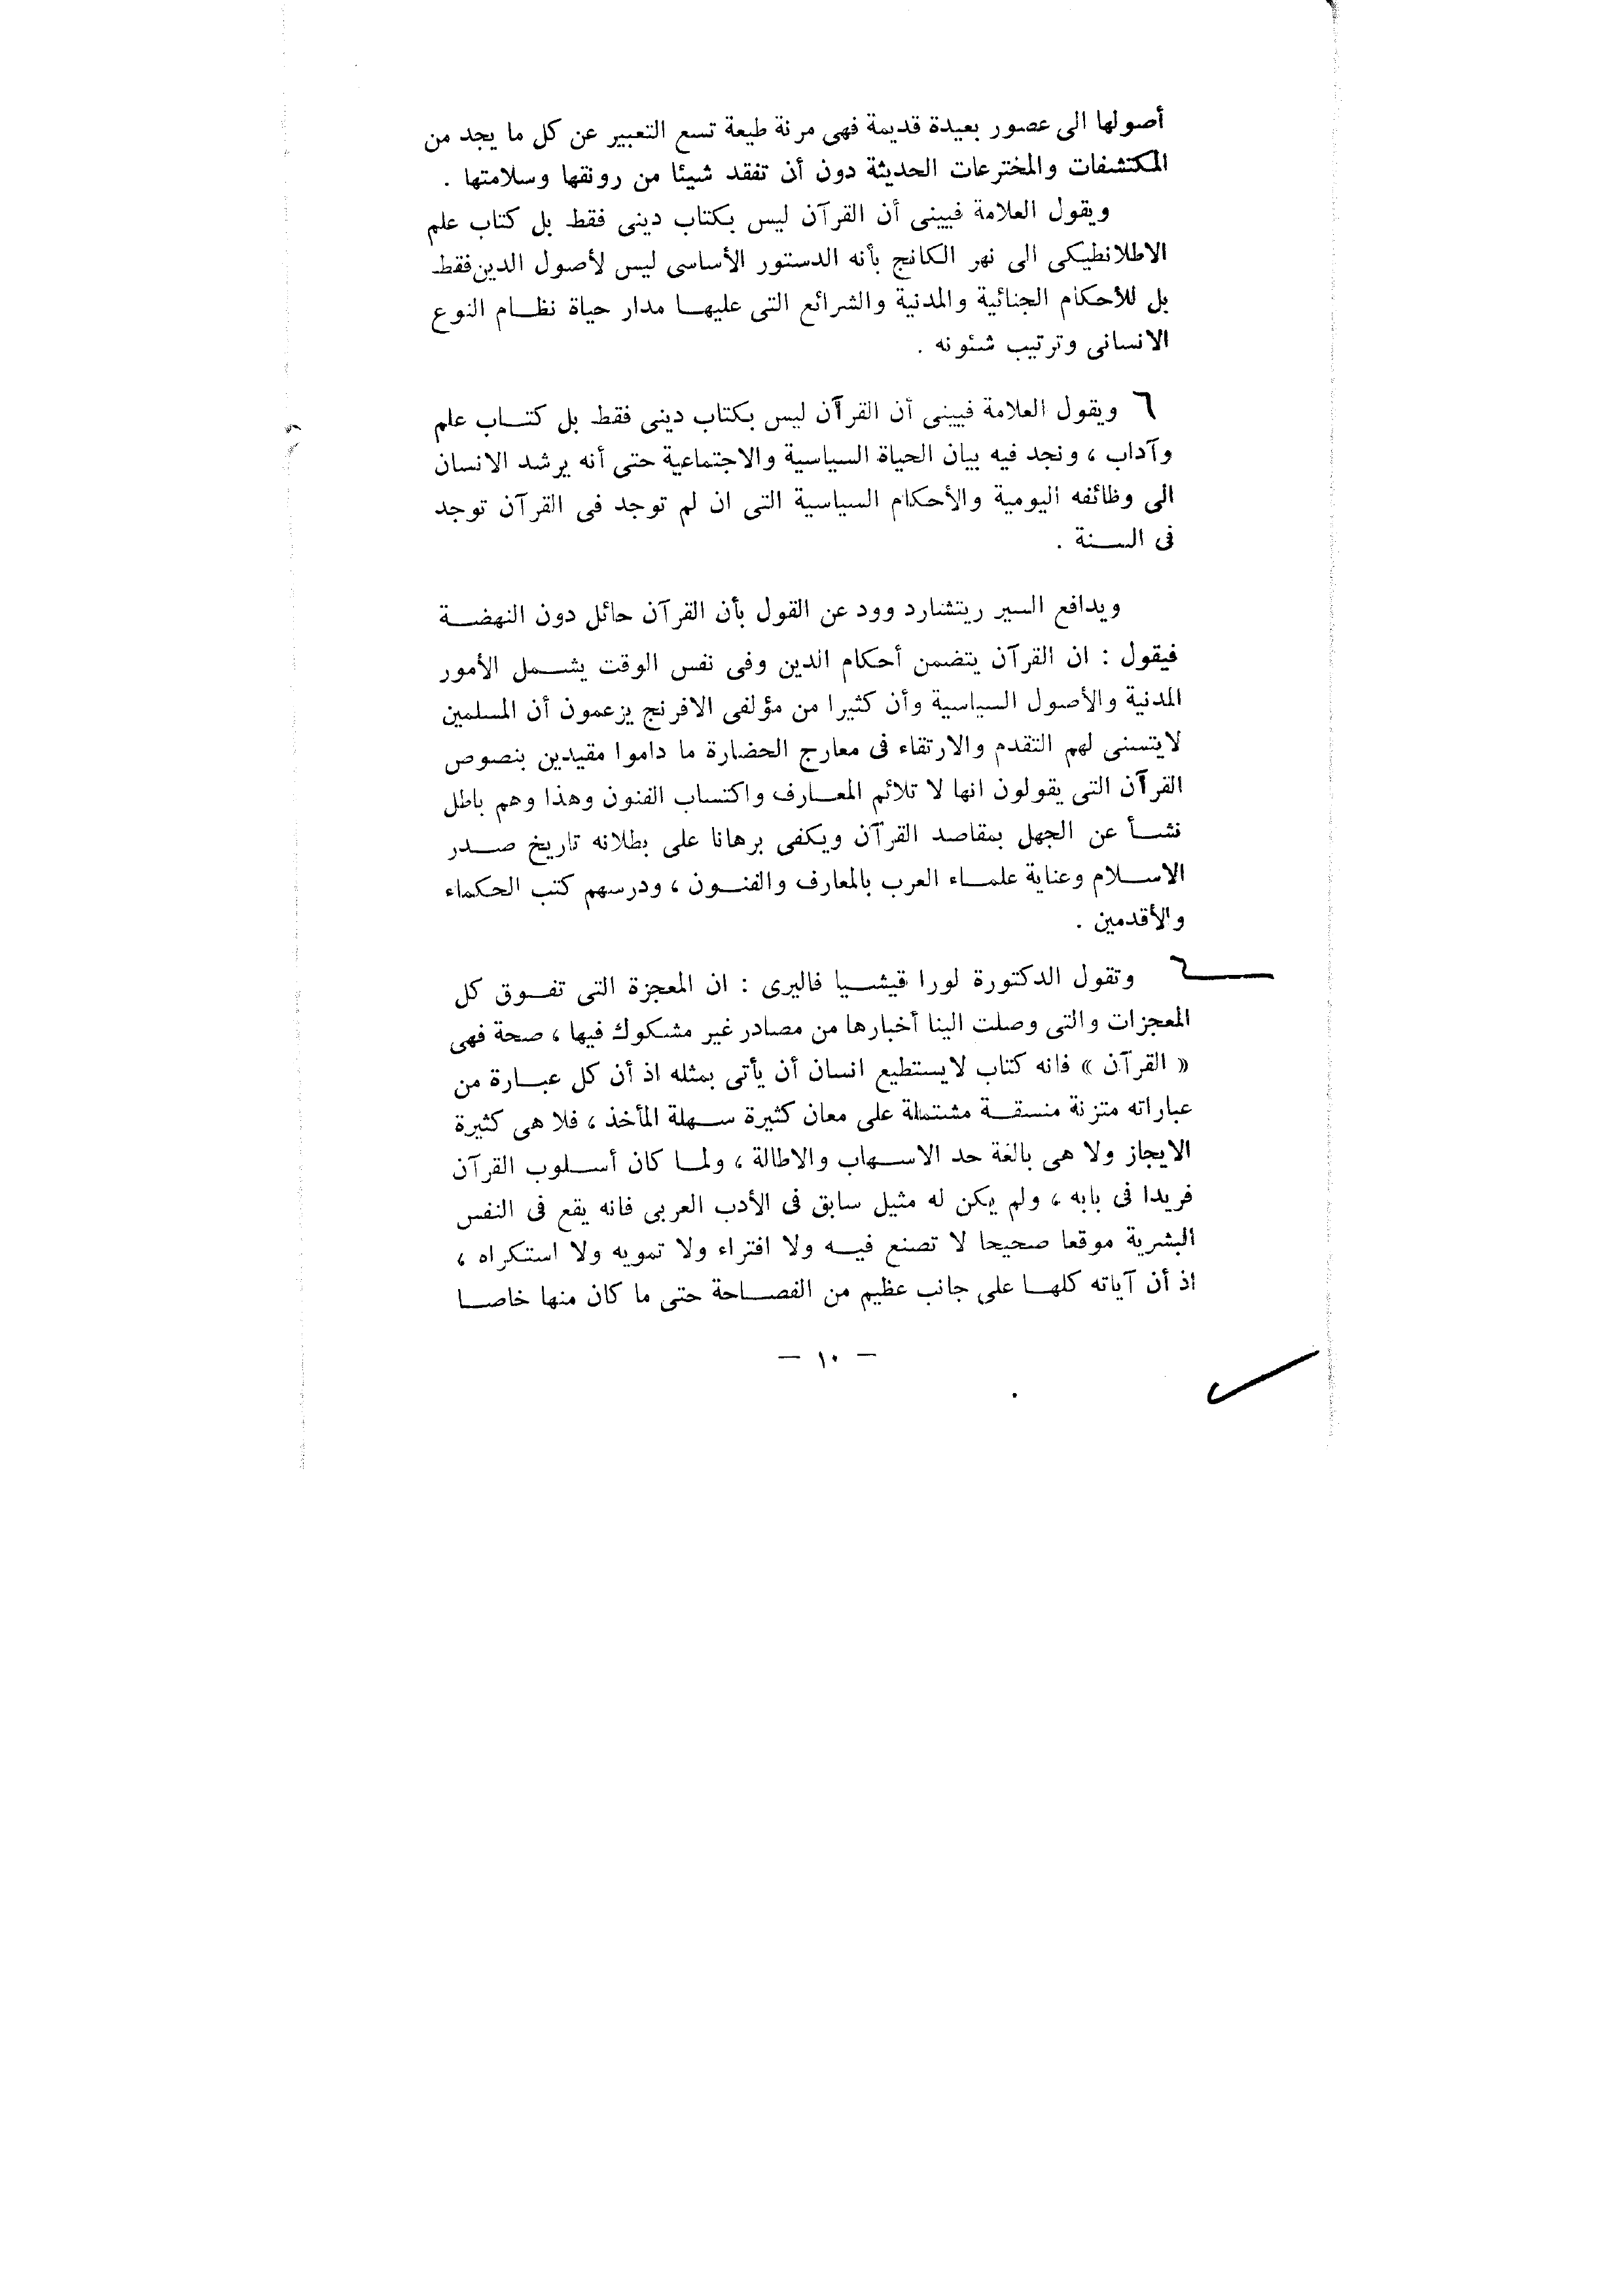 أصولها الى عصور بعيدة قديمة فهى مرنة طيعة تسع التعبير عن كل ما يجد من
المكتشفات والمخترعات الحديثة دون أن تفقد شيئا من رونقها وسلامتها .
ويقول العلامة فيينى أن القرآن ليس بكتاب دينى فقط بل كتاب علم
الاطلانطيكى الى نهر الكانج بأنه الدستور الأساسى ليس لأصول الدين فقط
بل للأحكام الجنائية والمدنية والشرائع التى عليهـا مدار حياة نظـام النوع
الانسانى وترتيب شئونه .
٦ ويقول العلامة فيينى أن القرآن ليس بكتاب دينى فقط بل كتـاب علم
وآداب ، ونجد فيه بيان الحياة السياسية والاجتماعية حتى أنه يرشد الانسان
الى وظائفه اليومية والأحكام السياسية التى ان لم توجد فى القرآن توجد
فى السـنة .
ويدافع السير ريتشارد وود عن القول بأن القرآن حائل دون النهضـة
فيقول : ان القرآن يتضمن أحكام الدين وفى نفس الوقت يشـمل الأمور
المدنية والأصول السياسية وأن كثيرا من مؤلفى الافرنج يزعمون أن المسلمين
لايتسنى لهم التقدم والارتقاء فى معارج الحضارة ما داموا مقيدين بنصوص
القرآن التى يقولون انها لا تلائم المعـارف واكتساب الفنون وهذا وهم باطل
نشـأ عن الجهل بمقاصد القرآن ويكفى برهانا على بطلانه تاريخ صـدر
الاسـلام وعناية علمـاء العرب بالمعارف والفنـون ، ودرسهم كتب الحكماء
والأقدمين .
٦ وتقول الدكتورة لورا قيشـيا فاليرى : ان المعجزة التى تفـوق كل
المعجزات والتى وصلت الينا أخبارها من مصادر غير مشكوك فيها ، صحة فهى
« القرآن » فانه كتاب لايستطيع انسان أن يأتى بمثله اذ أن كل عبـارة من
عباراته متزنة منسقـة مشتملة على معان كثيرة سـهلة المأخذ ، فلا هى كثيرة
الايجاز ولا هى بالغة حد الاسـهاب والاطالة ، ولمـا كان أسـلوب القرآن
فريدا فى بابه ، ولم يكن له مثيل سابق فى الأدب العربى فانه يقع فى النفس
البشرية موقعا صحيحا لا تصنع فيـه ولا افتراء ولا تمويه ولا استكراه ،
اذ أن آياته كلهـا على جانب عظيم من الفصـاحة حتى ما كان منها خاصـا
— ١٠ —